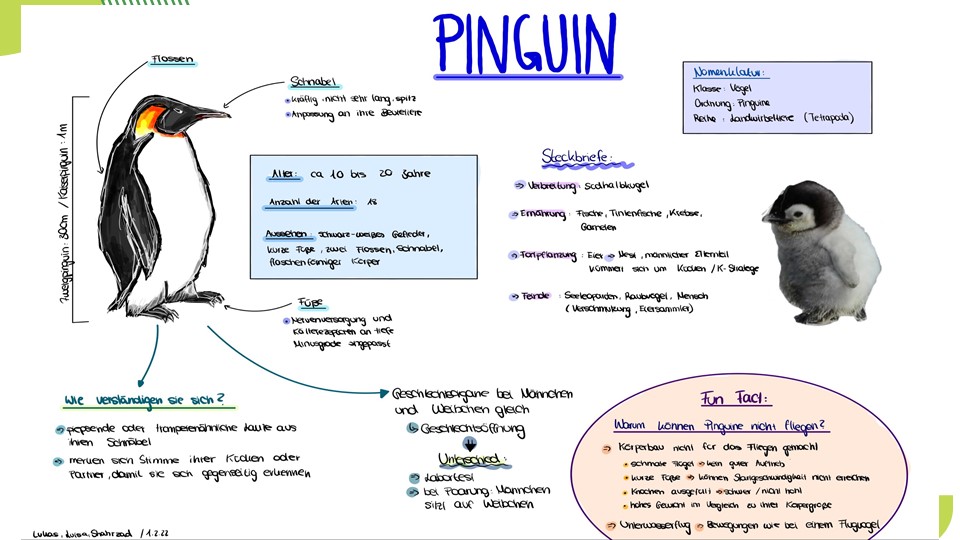 PINGUIN
Flossen
Schnabel
kräftig, nicht sehr lang, spitz
Anpassung an ihre Beutetiere
Nomenklatur:
Klasse: Vögel
Ordnung: Pinguine
Reihe: Landwirbeltiere (Tetrapoda)
Zwergpinguin: 30cm / Kaiserpinguin: 1m
Alter: ca 10 bis 20 Jahre
Anzahl der Arten: 18
Aussehen: schwarz-weißes Gefieder,
kurze Füße, zwei Flossen, Schnabel,
flaschenförmiger Körper
Steckbriefe:
⇒ Verbreitung: Südhalbkugel
⇒ Ernährung: Fische, Tintenfische, Krebse,
Garnelen
⇒ Fortpflanzung: Eier ⇒ Nest, männlicher Elternteil
kümmert sich um Kücken / K-Strategie
⇒ Feinde: Seeleoparden, Raubvögel, Mensch
(Verschmutzung, Eiersammler)
Füße
Nervenversorgung und
Kälterezeptoren an tiefe
Minusgrade angepasst
Wie verständigen sie sich?
⇒ piepsende oder trompetenähnliche Laute aus
ihren Schnäbel
⇒ merken sich Stimme ihrer Kücken oder
Partner, damit sie sich gegenseitig erkennen
Geschlechtsorgane bei Männchen
und Weibchen gleich
↳ Geschlechtsöffnung
Unterschied:
⇒ Labortest
⇒ bei Paarung: Männchen
sitzt auf Weibchen
Fun Fact:
Warum können Pinguine nicht fliegen?
⇒ Körperbau nicht für das Fliegen gemacht
schmale Flügel ⇒ kein guter Auftrieb
kurze Füße ⇒ können Startgeschwindigkeit nicht erreichen
Knochen ausgefüllt ⇒ schwer / nicht hohl
hohes Gewicht im Vergleich zu ihrer Körpergröße
⇒ Unterwasserflug ⇒ Bewegungen wie bei einem Flugvogel
Lukas, Luisa, Shahrzad / 1.2.22